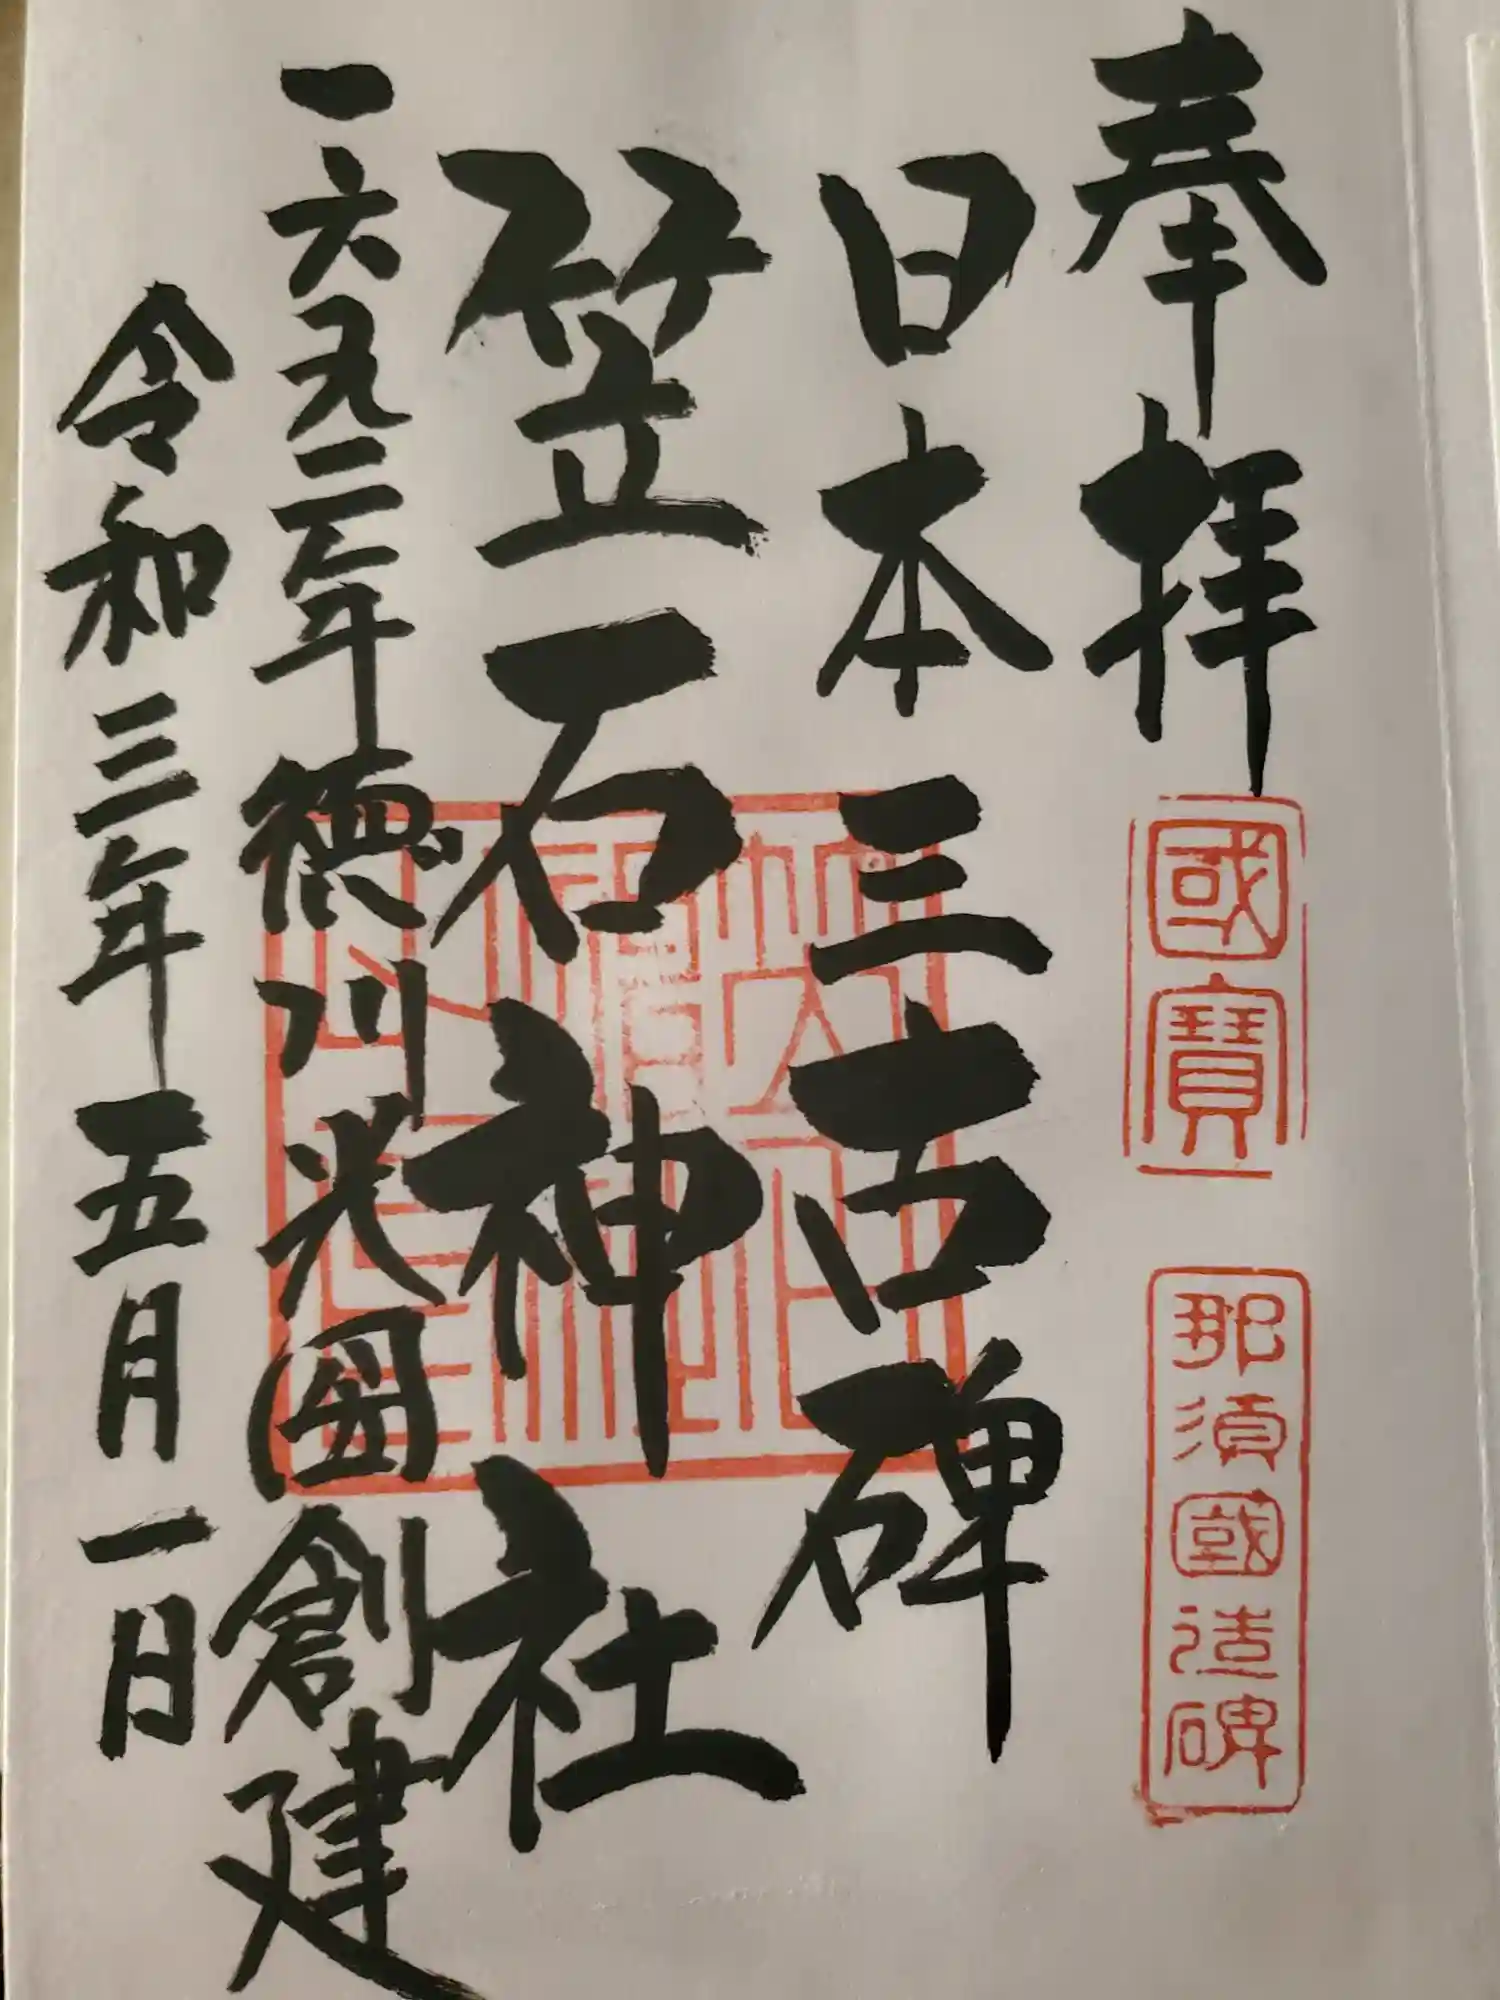 奉拝
國寳
那須國造碑
日本三古碑
笠石神社
一六九二年徳川光圀創建
令和三年五月一日